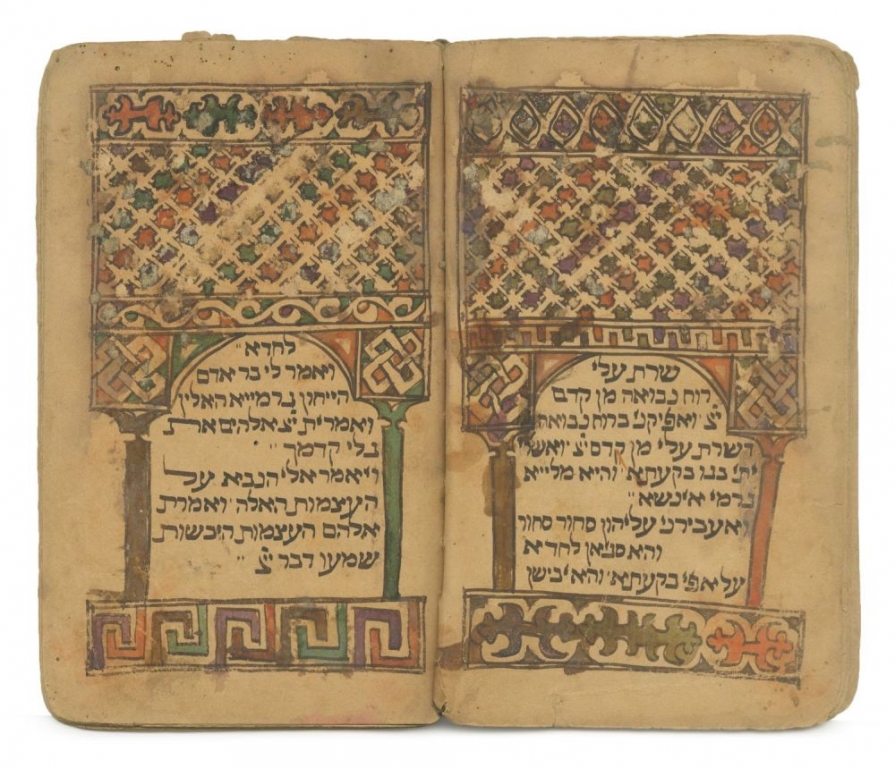 שרת עלי
רוח נבואה מן קדם
יצ׳ ואפיקני ברוח נבואה
דשרת עלי מן קדם יצ׳ ואשרי
יתי בגו בקעתא׳ והיא מלייא
גרמי אינשא״
ואעבירני עליהון סחור סחור
והא סגיאן לחדא
על אפי בקעתא׳ והא יבישן
לחדא״
ויאמר לי בר אדם
הייחון גרמייא האלין
ואמרית יצ׳ אלהים את
גלי קדמך״
ויאמר אלי הנבא על
העצמות האלה׳ ואמרת
אלהם העצמות היבשות
שמעו דבר יצ׳״